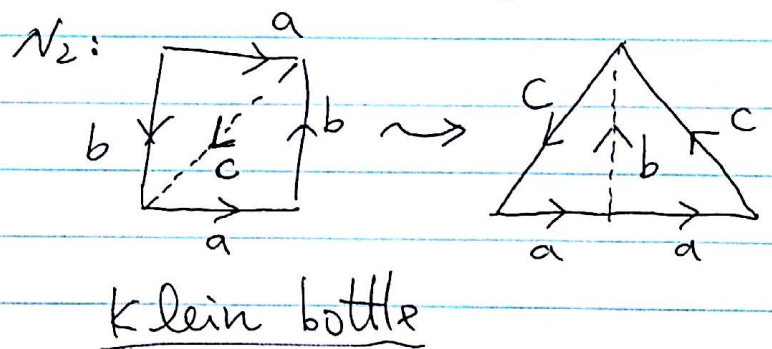 N₂:
a
b
b
c
a
c
c
b
a
a
Klein bottle